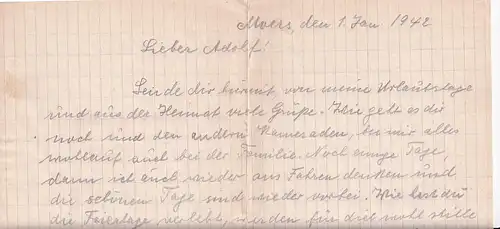 Moers, den 1. Jan 1942
Lieber Adolf!
Sende dir hiermit von meine Urlaubstage
und aus der Heimat viele Grüße. Wie geht es dir
noch und den andern Kameraden, bei mir alles
wohlauf auch bei der Familie. Noch einige Tage,
dann ich auch wieder ans Fahren denken und
die schönen Tage sind wieder vorbei. Wie hast du
die Feiertage verlebt, werden für dich wohl stille